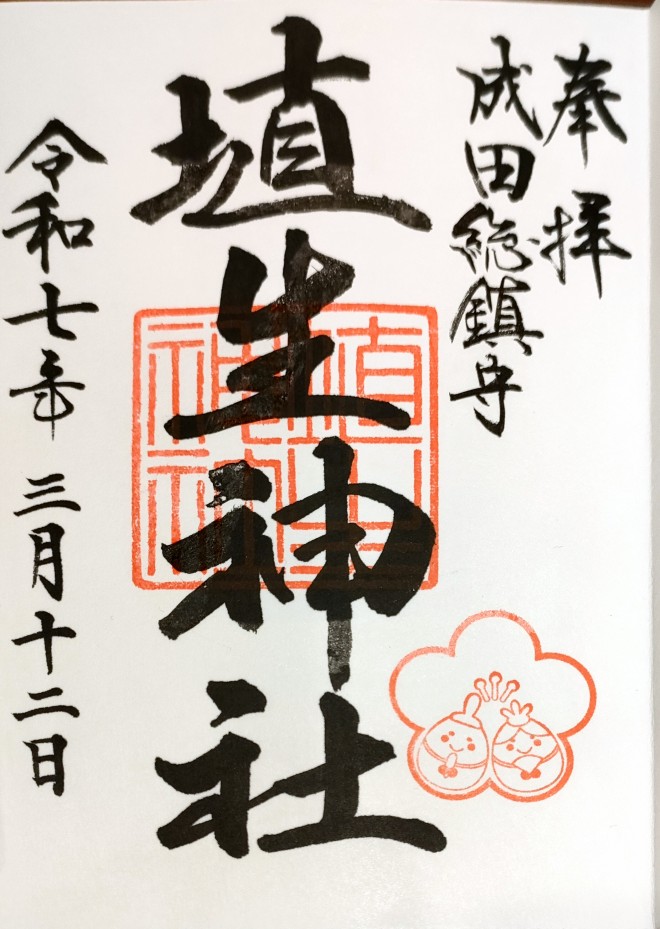 奉拝
成田総鎮守
埴生神社
令和七年 三月十二日